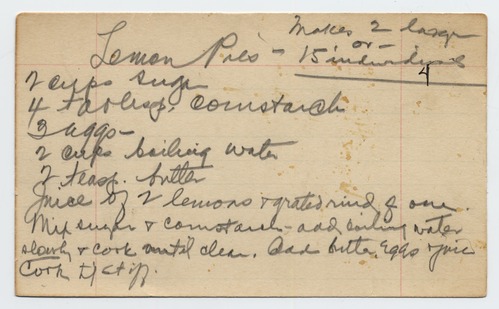 Makes 2 large
Lemon Pies - or -
15 individuals
4
2 cups sugar
4 tablesp. cornstarch
3 eggs -
2 cups boiling water
2 teasp. butter
Juice of 2 lemons + grated rind of one.
Mix sugar + cornstarch - add boiling water
slowly + cook until clear. Add butter, eggs + juice
Cook til stiff.